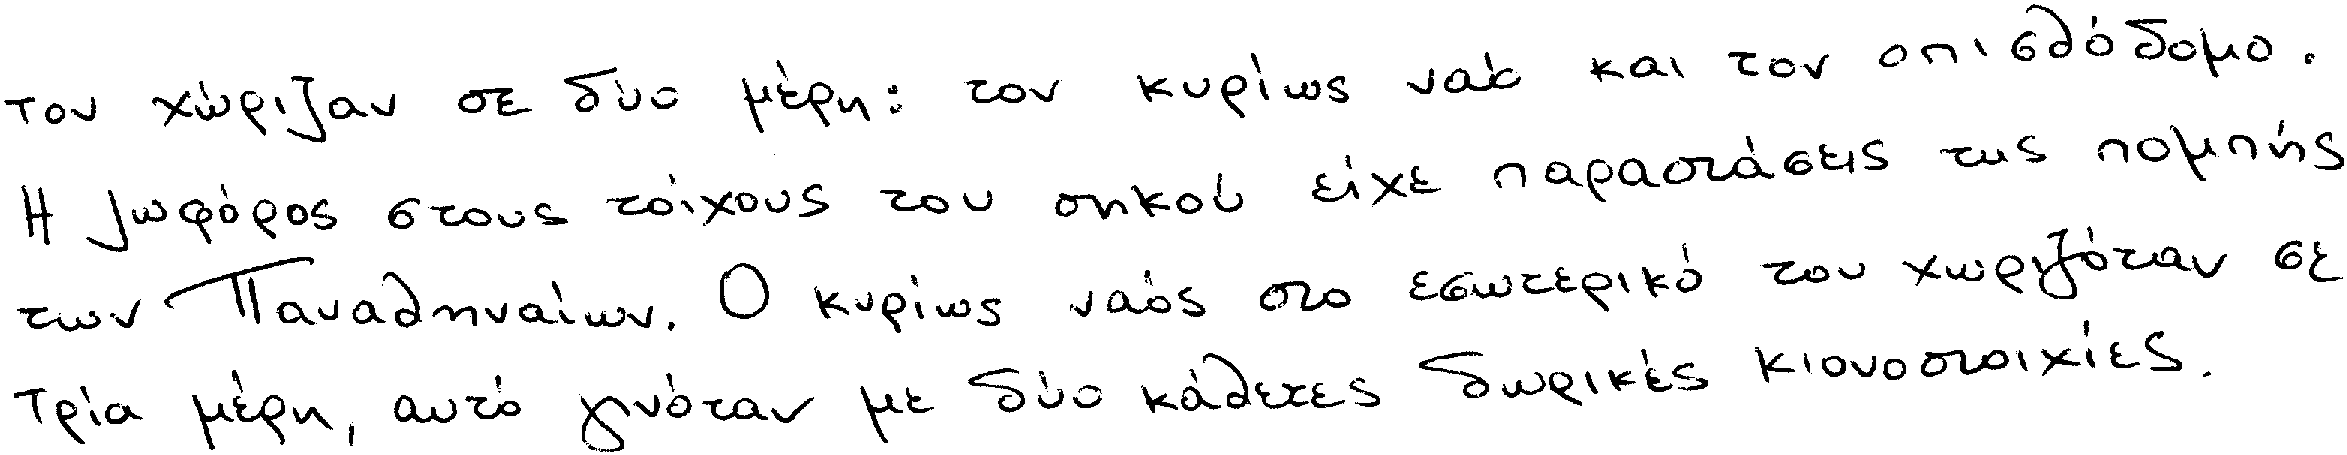 τον χώριζαν σε δύο μέρη: τον κυρίως ναό και τον οπισθόδομο.
Η ζωφόρος στους τοίχους του σηκού είχε παραστάσεις της πομπής
των Παναθηναίων. Ο κυρίως ναός στο εσωτερικό του χωριζόταν σε
τρία μέρη, αυτό γινόταν με δύο κάθετες δωρικές κιονοστοιχίες.